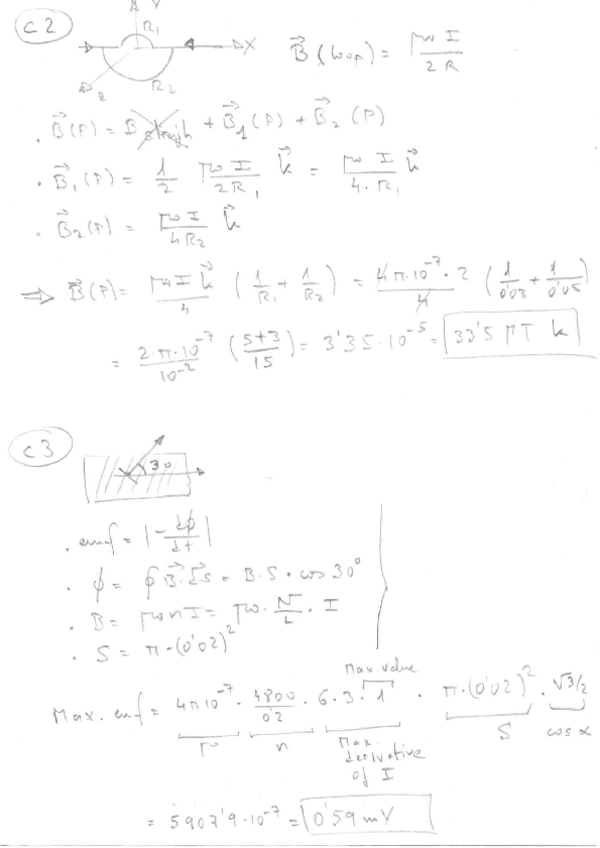 C2
Y
R₁
X
R₂
z
B⃗ (loop) = μ₀ I / 2 R
· B⃗ (P) = B straigh + B⃗₁ (P) + B⃗₂ (P)
· B⃗₁ (P) = 1/2 μ₀ I / 2R₁ k⃗ = μ₀ I / 4·R₁ k⃗
· B⃗₂ (P) = μ₀ I / 4R₂ k⃗
⇒ B⃗ (P) = μ₀ I k⃗ / 4 (1/R₁ + 1/R₂) = 4π·10⁻⁷·2 / 4 (1/0'03 + 1/0'05)
= 2·π·10⁻⁷ / 10⁻² (5+3 / 15) = 3'35·10⁻⁵ = 33'5 μT k
C3
30
· emf = |- dϕ/dt|
· ϕ = ∮ B⃗·dS⃗ = B·S·cos 30°
· B = μ₀ n I = μ₀ · N/L · I
· S = π·(0'02)²
Max. value
Max. emf = 4π10⁻⁷ · 4800/0'2 · 6·3·1 · π·(0'02)² · √3/2
μ n Max. derivative of I S cos α
= 5907'9·10⁻⁷ = 0'59 mV